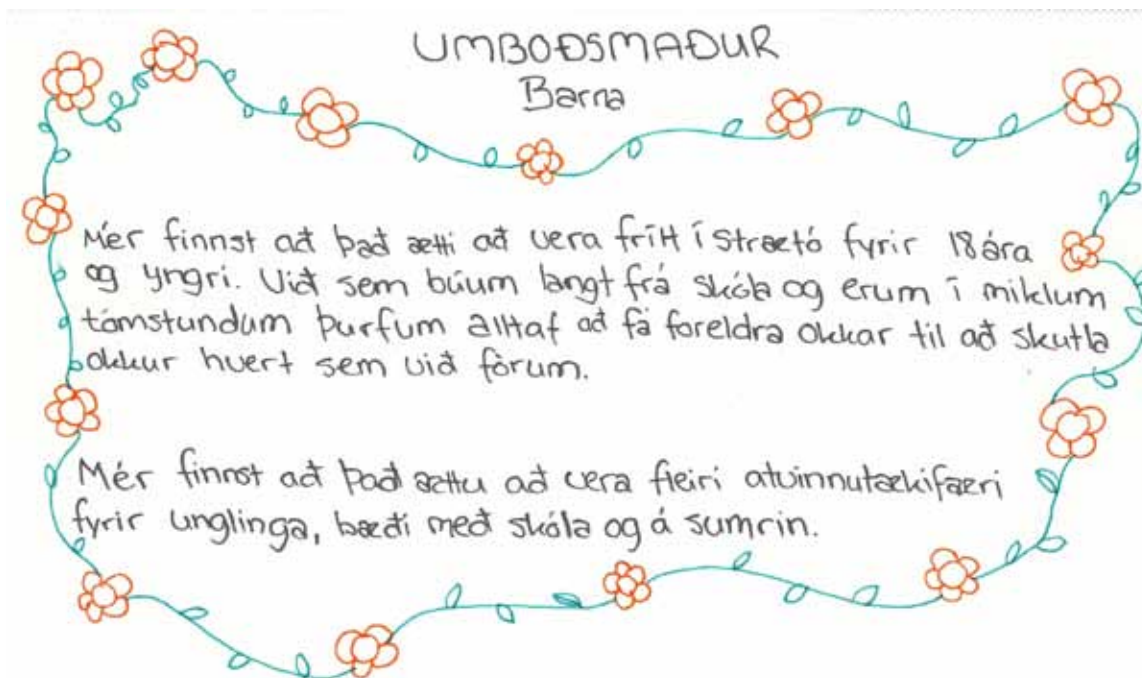 UMBOÐSMAÐUR
Barna
Mér finnst að það ætti að vera frítt í strætó fyrir 18 ára
og yngri. Við sem búum langt frá skóla og erum í miklum
tómstundum þurfum alltaf að fá foreldra okkar til að skutla
okkur hvert sem við förum.
Mér finnst að það ættu að vera fleiri atvinnutækifæri
fyrir unglinga, bæði með skóla og á sumrin.